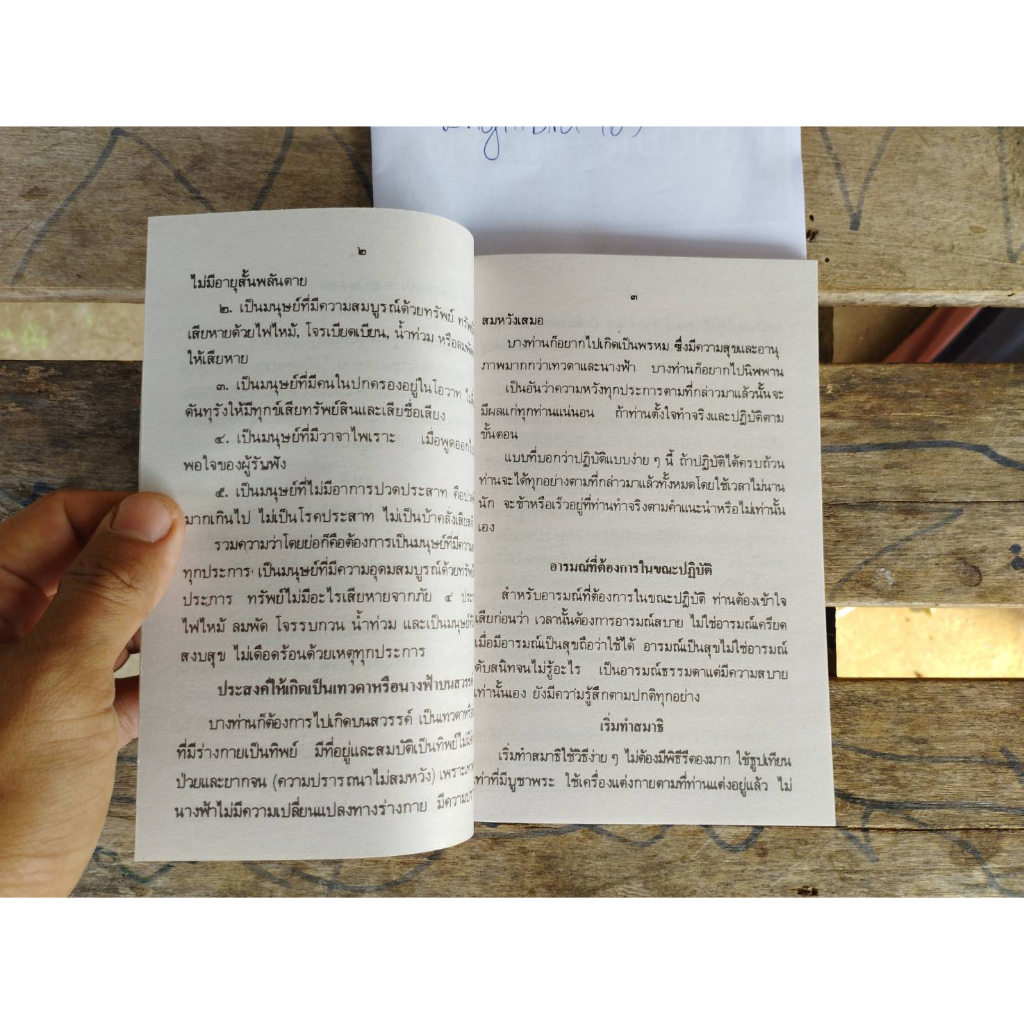 ๒
ไม่มีอายุสั้นพลันตาย
๒. เป็นมนุษย์ที่มีความสมบูรณ์ด้วยทรัพย์
เสียหายด้วยไฟไหม้, โจรเบียดเบียน, น้ำท่วม หรือลมพัด
ให้เสียหาย
๓. เป็นมนุษย์ที่มีคนในปกครองอยู่ในโอวาท
ดันทุรังให้มีทุกข์เสียทรัพย์สินและเสียชื่อเสียง
๔. เป็นมนุษย์ที่มีวาจาไพเราะ เมื่อพูดออกไป
พอใจของผู้รับฟัง
๕. เป็นมนุษย์ที่ไม่มีอาการปวดประสาท คือ
มากเกินไป ไม่เป็นโรคประสาท ไม่เป็นบ้าคลั่ง
รวมความว่าโดยย่อก็คือต้องการเป็นมนุษย์ที่มีความ
ทุกประการ เป็นมนุษย์ที่มีความอุดมสมบูรณ์ด้วยทรัพย์
ประการ ทรัพย์ไม่มีอะไรเสียหายจากภัย ๔
ไฟไหม้ ลมพัด โจรรบกวน น้ำท่วม และเป็นมนุษย์ที่
สงบสุข ไม่เดือดร้อนด้วยเหตุทุกประการ
ประสงค์ให้เกิดเป็นเทวดาหรือนางฟ้าบนสวรรค์
บางท่านก็ต้องการไปเกิดบนสวรรค์ เป็นเทวดาหรือ
ที่มีร่างกายเป็นทิพย์ มีที่อยู่และสมบัติเป็นทิพย์ไม่มี
ป่วยและยากจน (ความปรารถนาไม่สมหวัง)
นางฟ้าไม่มีความเปลี่ยนแปลงทางร่างกาย
๓
สมหวังเสมอ
บางท่านก็อยากไปเกิดเป็นพรหม ซึ่งมีความสุขและอานุ
ภาพมากกว่าเทวดาและนางฟ้า บางท่านก็อยากไปนิพพาน
เป็นอันว่าความหวังทุกประการตามที่กล่าวมาแล้วนั้นจะ
มีผลแก่ทุกท่านแน่นอน ถ้าท่านตั้งใจทำจริงและปฏิบัติตาม
ขั้นตอน
แบบที่บอกว่าปฏิบัติแบบง่าย ๆ นี้ ถ้าปฏิบัติได้ครบถ้วน
ท่านจะได้ทุกอย่างตามที่กล่าวมาแล้วทั้งหมดโดยใช้เวลาไม่นาน
นัก จะช้าหรือเร็วอยู่ที่ท่านทำจริงตามคำแนะนำหรือไม่เท่านั้น
เอง
อารมณ์ที่ต้องการในขณะปฏิบัติ
สำหรับอารมณ์ที่ต้องการในขณะปฏิบัติ ท่านต้องเข้าใจ
เสียก่อนว่า เวลานั้นต้องการอารมณ์สบาย ไม่ใช่อารมณ์เครียด
เมื่อมีอารมณ์เป็นสุขถือว่าใช้ได้ อารมณ์เป็นสุขไม่ใช่อารมณ์
ดับสนิทจนไม่รู้อะไร เป็นอารมณ์ธรรมดาแต่มีความสบาย
เท่านั้นเอง ยังมีความรู้สึกตามปกติทุกอย่าง
เริ่มทำสมาธิ
เริ่มทำสมาธิใช้วิธีง่าย ๆ ไม่ต้องมีพิธีรีตองมาก ใช้ธูปเทียน
เท่าที่มีบูชาพระ ใช้เครื่องแต่งกายตามที่ท่านแต่งอยู่แล้ว ไม่